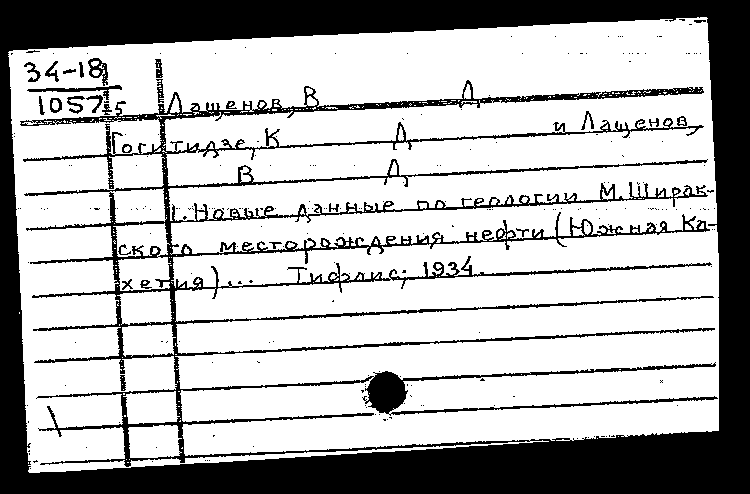 34-18
1057₅ Лащенов, В Д
Гогитидзе, К Д. и Лащенов,
В Д,
1. Новые данные по геологии М. Ширак-
ского месторождения нефти (Южная Ка-
хетия)... Тифлис, 1934.